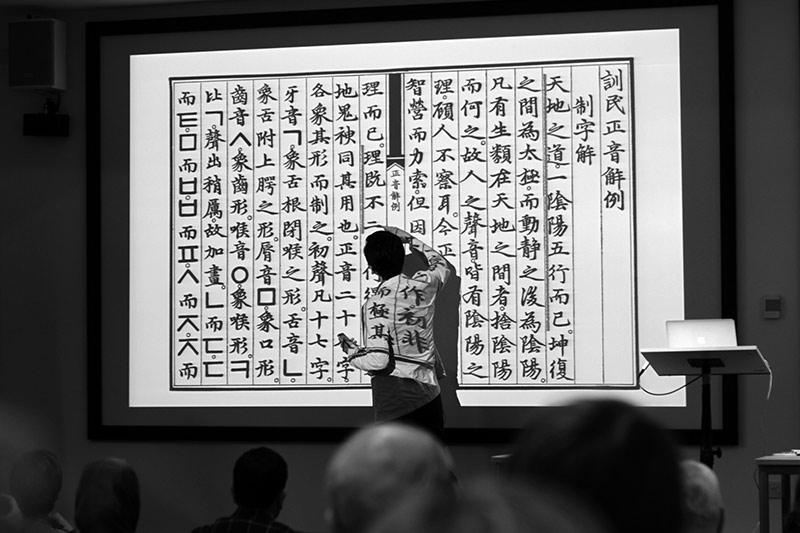 訓民正音解例
制字解
天地之道。一陰陽五行而已。坤復
之間為太極。而動靜之後為陰陽。
凡有生類在天地之間者。捨陰陽
而何之。故人之聲音。皆有陰陽之
理。顧人不察耳。今正 作。初非
智營而力索。但因 而極其
正音解例
理而已。理既不二
地鬼神同其用也。正音二十 字。
各象其形而制之。初聲凡十七字。
牙音ㄱ。象舌根閉喉之形。舌音ㄴ。
象舌附上腭之形。脣音ㅁ。象口形。
齒音ㅅ。象齒形。喉音ㅇ。象喉形。ㅋ
比ㄱ。聲出稍厲。故加畫。ㄴ而ㄷ。ㄷ
而ㅌ。ㅁ而ㅂ。ㅂ而ㅍ。ㅅ而ㅈ。ㅈ而